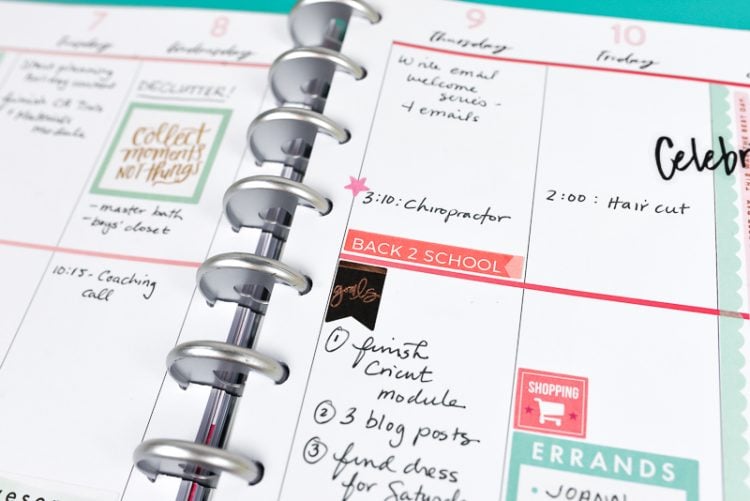 7
Tuesday
8
Wednesday
9
Thursday
10
Friday
Start planning
module
DECLUTTER!
COLLECT
MOMENTS
NOT THINGS
- master bath
- boys' closet
10:15 - Coaching
call
Write email
welcome
series -
+ emails
3:10: Chiropractor
BACK 2 SCHOOL
goals
① finish
Cricut
module
② 3 blog posts
③ find dress
for Saturda
2:00 : Hair cut
SHOPPING
ERRANDS
• JOANN
Celebr